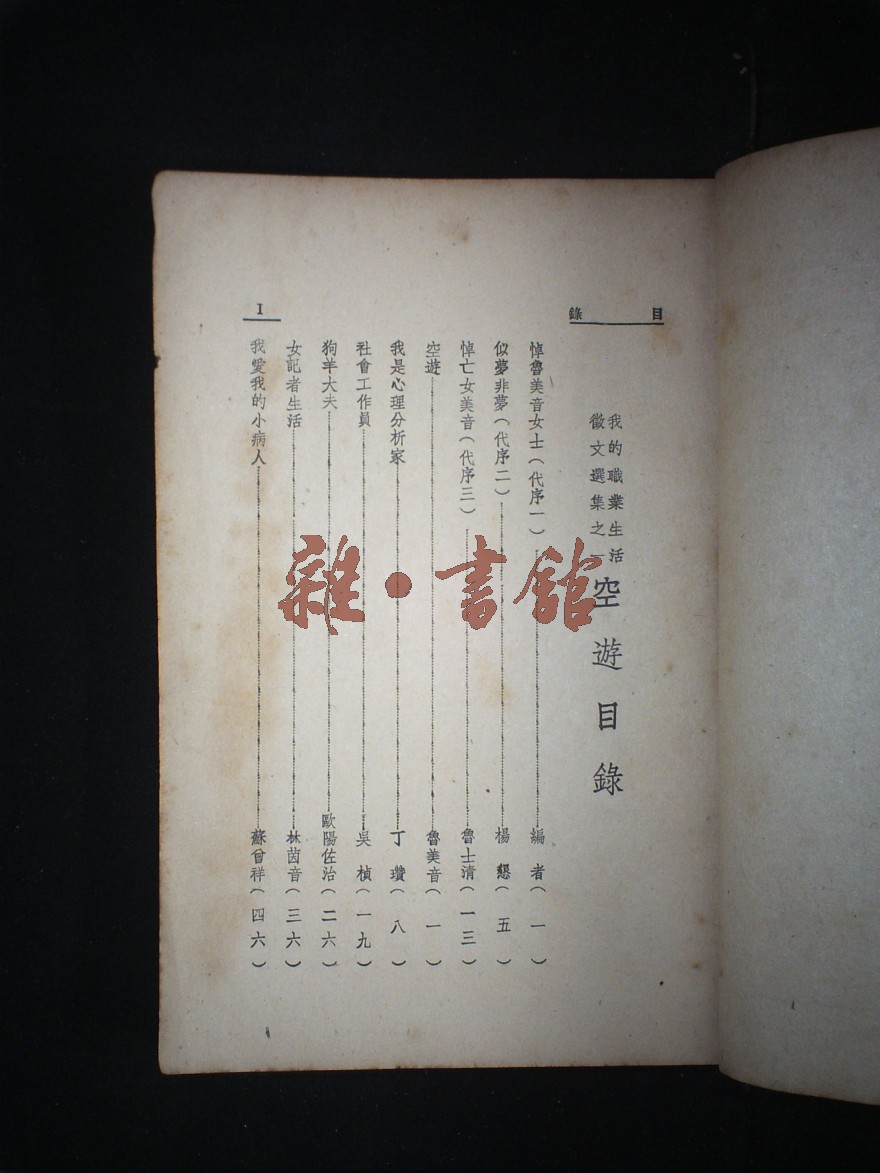 目錄
我的職業生活
徵文選集之一
空遊目錄
悼魯美音女士(代序一)編者(一)
似夢非夢(代序二)楊懇(五)
悼亡女美音(代序三)魯士清(一三)
空遊魯美音(一)
我是心理分析家丁瓚(八)
社會工作員吳楨(一九)
狗羊大夫歐陽佐治(二六)
女記者生活林茵音(三六)
我愛我的小病人蘇曾祥(四六)
I
雜·書館